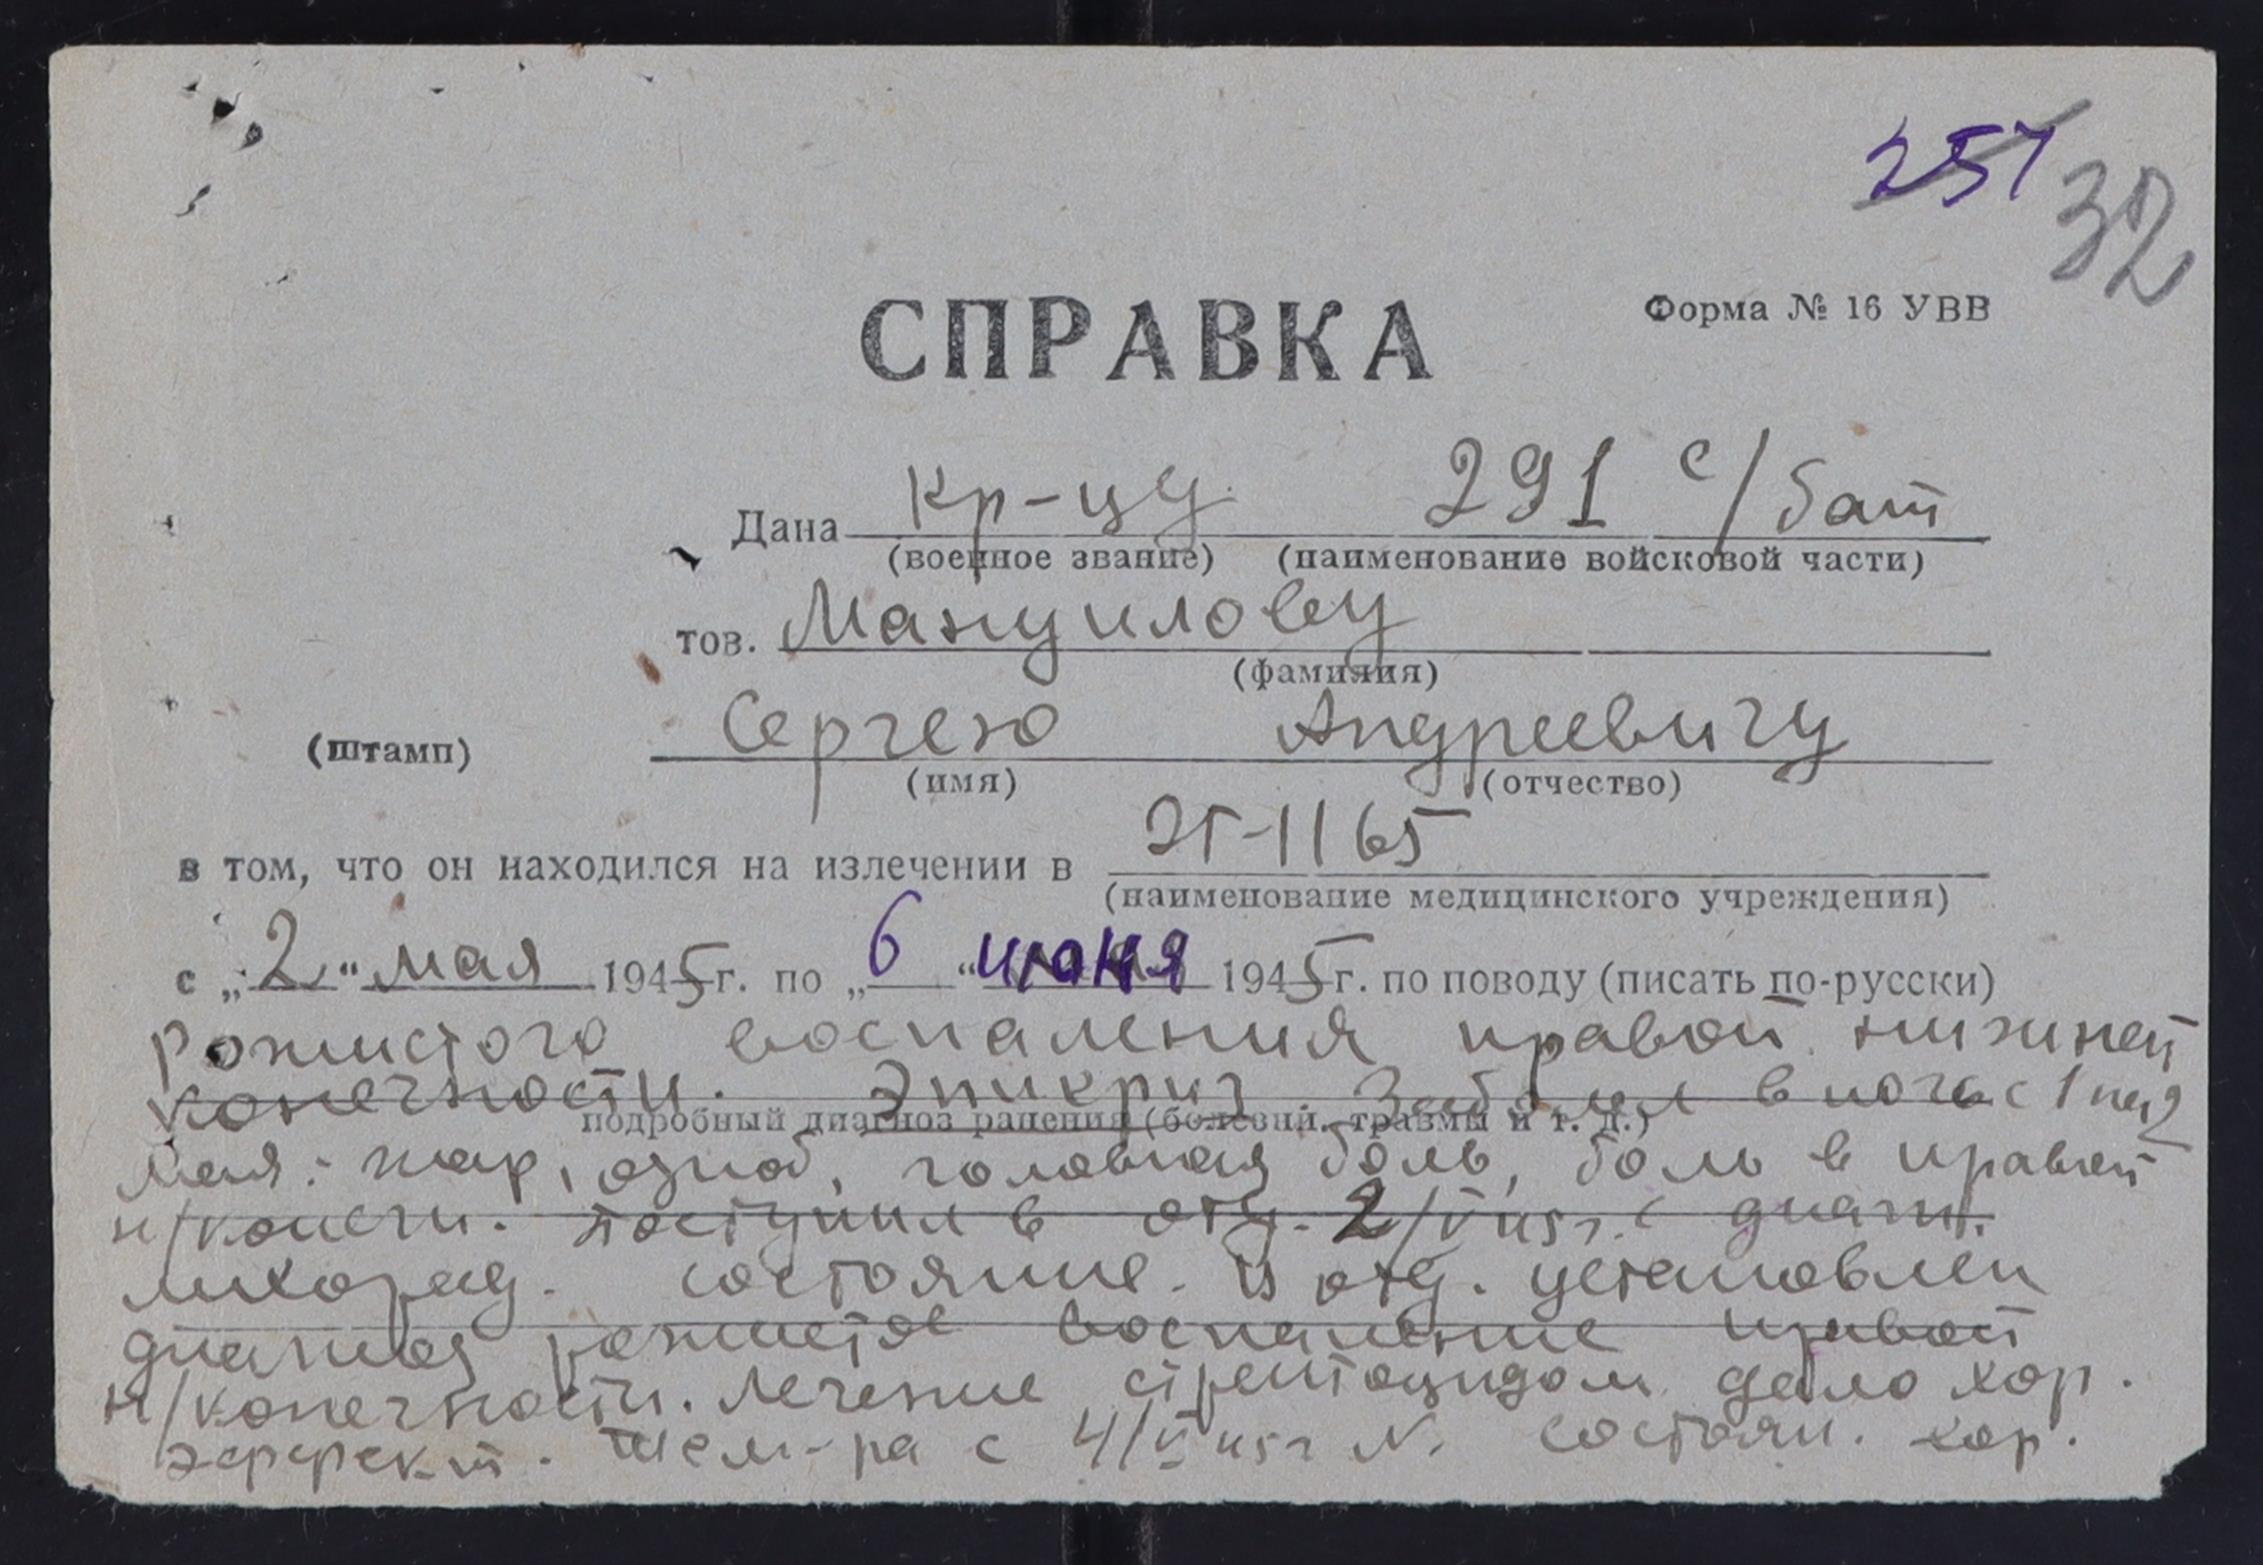 257 32
СПРАВКА
Форма № 16 УВВ
Дана кр-цу 291 с/бат
(военное звание) (наименование войсковой части)
тов. Мануилову
(фамилия)
Сергею Андреевичу
(штамп)
(имя) (отчество)
в том, что он находился на излечении в ЭГ-1165
(наименование медицинского учреждения)
с „2“ мая 1945 г. по „6“ июня 1945 г. по поводу (писать по-русски)
Рожистого воспаления правой нижней
конечности. Эпикриз. Заболел в ночь с 1 на 2
подробный диагноз ранения (болезни, травмы и т. д.)
мая: жар, озноб, головная боль, боль в правой
н/конечн. Поступил в отд. 2/V 45 г. с диагн.
лихорад. состояние. В отд. установлен
диагноз рожистое воспаление правой
н/конечности. Лечение стрептоцидом дало хор.
эффект. Тем-ра с 4/V 45 г N. Состоян. хор.